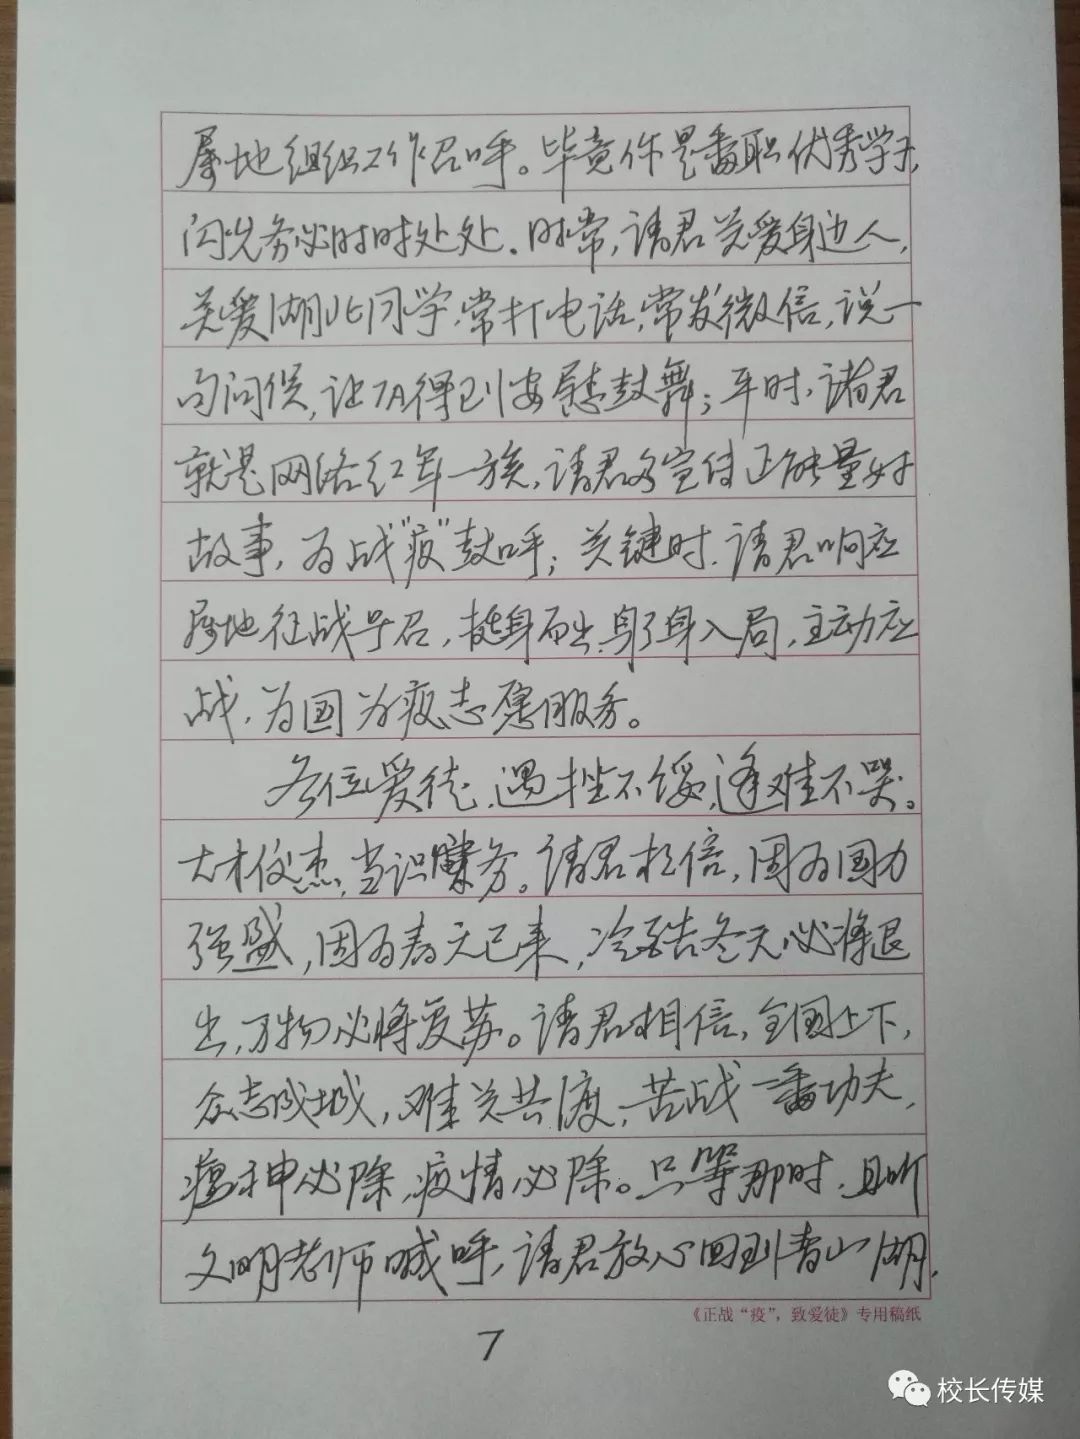 属地组织工作召呼。毕竟你是番职优秀学子,
闪光务必时时处处。时常,请君关爱身边人,
关爱湖北同学,常打电话,常发微信,说一
句问候,让TA得到安慰鼓舞;平时,诸君
就是网络红军一族,请君多宣传正能量好
故事,为战"疫"鼓呼;关键时,请君响应
属地征战号召,挺身而出,躬身入局,主动应
战,为国为疫志愿服务。
各位爱徒,遇挫不馁,逢难不哭。
大才俊杰,当识时务。请君相信,因为国力
强盛,因为春天已来,冷酷冬天必将退
出,万物必将复苏。请君相信,全国上下,
众志成城,难关共渡,苦战一番功夫,
瘟神必除,疫情必除。只等那时,且听
文明老师喊呼,请君放心回到青山湖,
《正战“疫”,致爱徒》专用稿纸
7
校长传媒